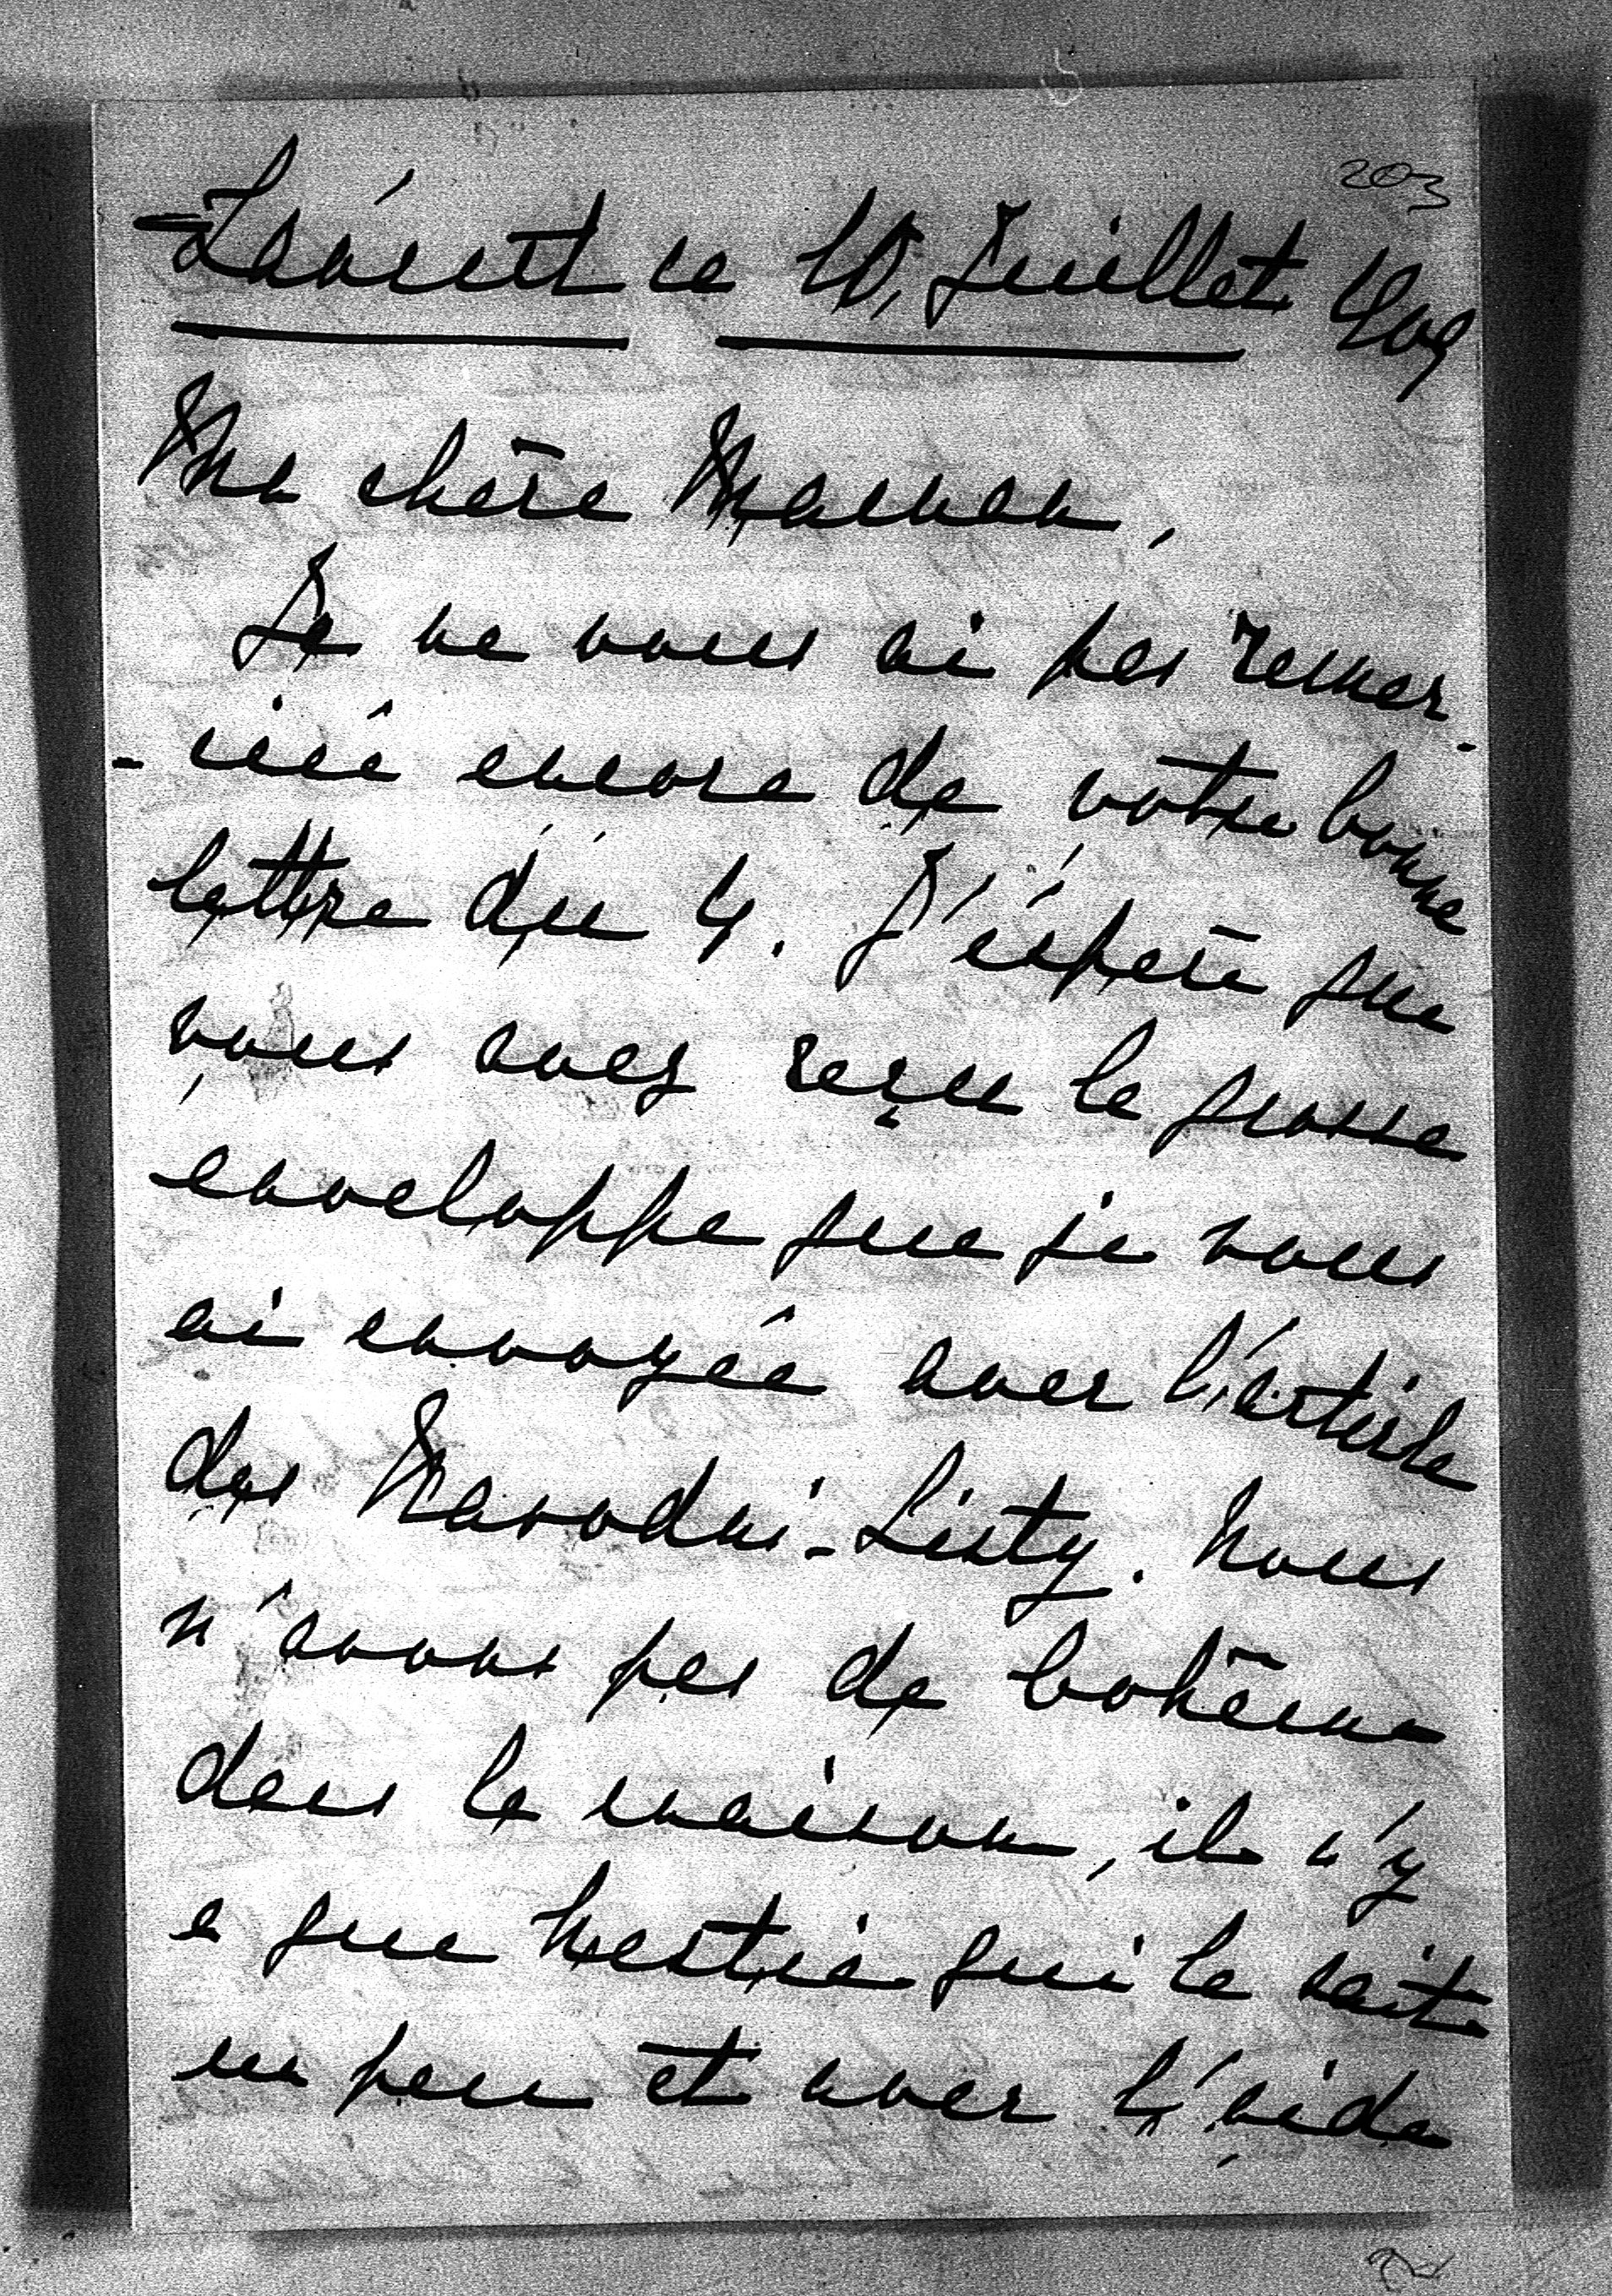 203
ce 10, Juillet 909
Ma chère Maman,
Je ne vous ai pas remer-
-cié encore de votre bonne
lettre du 4. J'éspère que
vous avez reçu la grosse
enveloppe que je vous
ai envoyée avec l'article
des Narodni-Listy. Nous
n'avons pas de bohème
dans la maison, il n'y
a que qui le sait
un peu et avec l'aide